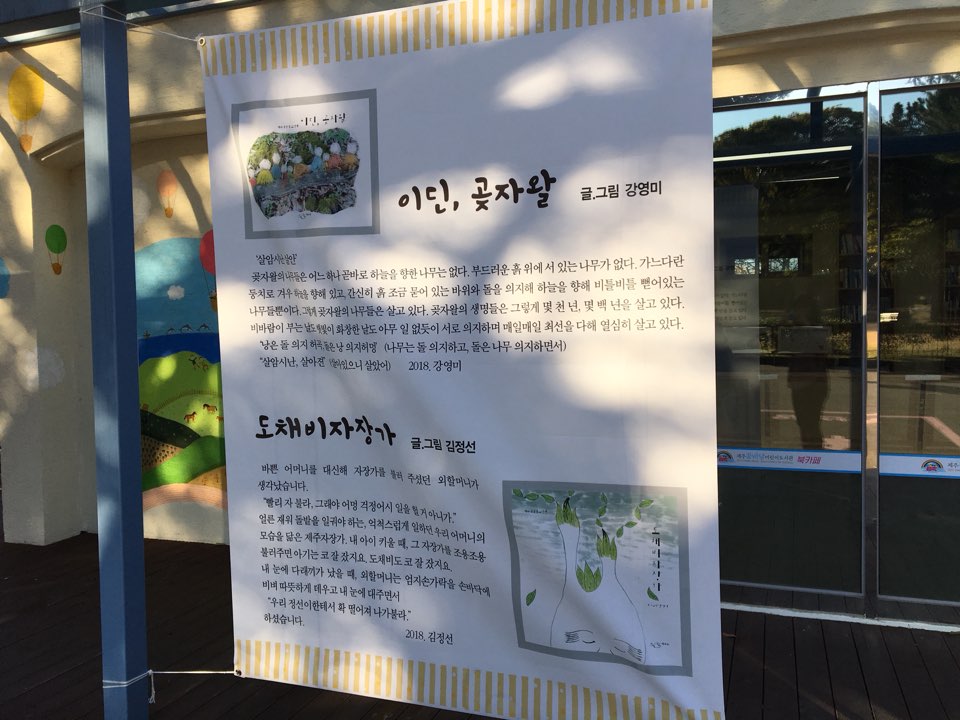 이딘, 곶자왈
이딘, 곶자왈 글.그림 강영미
'살암시난 살안'
곶자왈의 나무들은 어느 하나 곧바로 하늘을 향한 나무는 없다. 부드러운 흙 위에 서 있는 나무가 없다. 가느다란
둥치로 겨우 하늘을 향해 있고, 간신히 흙 조금 묻어 있는 바위와 돌을 의지해 하늘을 향해 비틀비틀 뻗어있는
나무들뿐이다. 그렇게 곶자왈의 나무들은 살고 있다. 곶자왈의 생명들은 그렇게 몇 천 년, 몇 백 년을 살고 있다.
비바람이 부는 날도 햇빛이 화창한 날도 아무 일 없듯이 서로 의지하며 매일매일 최선을 다해 열심히 살고 있다.
'낭은 돌 의지 허곡, 돌은 낭 의지허멍' (나무는 돌 의지하고, 돌은 나무 의지하면서)
"살암시난, 살아진" (살아있으니 살았어) 2018. 강영미
도채비자장가 글.그림 김정선
바쁜 어머니를 대신해 자장가를 불러 주셨던 외할머니가
생각났습니다.
"빨리 자 불라, 그래야 어멍 걱정어시 일을 헐 거 아니가."
얼른 재워 돌밭을 일궈야 하는, 억척스럽게 일하던 우리 어머니의
모습을 닮은 제주자장가. 내 아이 키울 때, 그 자장가를 조용조용
불러주면 아기는 코 잘 잤지요. 도채비도 코 잘 잤지요.
내 눈에 다래끼가 났을 때, 외할머니는 엄지손가락을 손바닥에
비벼 따뜻하게 데우고 내 눈에 대주면서
"우리 정선이한테서 확 떨어져 나가불라."
하셨습니다.
2018. 김정선
도채비자장가
제주꿈바당어린이도서관 북카페
제주